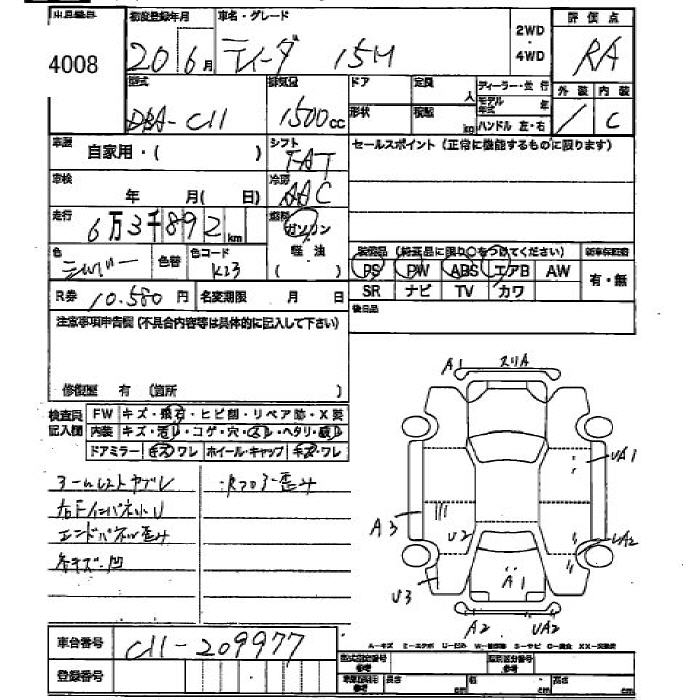 4008
初度登録年月
20 6月
車名・グレード
ティーダ 15M
2WD
・
4WD
評価点
RA
外装 内装
C
型式
DBA-C11
排気量
1500cc
ドア
定員
人
形状
積載
kg
ディーラー・並行
モデル年式 年
ハンドル 左・右
車歴
自家用・( )
シフト
FAT
セールスポイント (正常に機能するものに限ります)
車検
年 月( 日)
冷房
AAC
走行
6万3千892km
燃料
ガソリン
軽・油
色
シルバー
色替
色コード
K23
装備品 (純正品に限り○をつけてください)
PS PW ABS エアB AW
SR ナビ TV カワ
新車保証書
有・無
R券
10.580円
名変期限 月 日
後日品
注意事項申告欄(不具合内容等は具体的に記入して下さい)
修復歴 有 (箇所 )
検査員
記入欄
FW キズ・飛石・ヒビ割・リペア跡・X要
内装 キズ・汚レ・コゲ・穴・スレ・ヘタリ・破レ
ドアミラー キズ・ワレ ホイール・キャップ キズ・ワレ
エンドパネル歪み
各キズ・凹
A1 スリA
UA1
A3
U2
UA2
U3
A1
A2 UA2
車台番号
C11-209977
登録番号
A-キズ
型式指定番号
類別区分番号
長さ cm
幅 cm
高さ cm